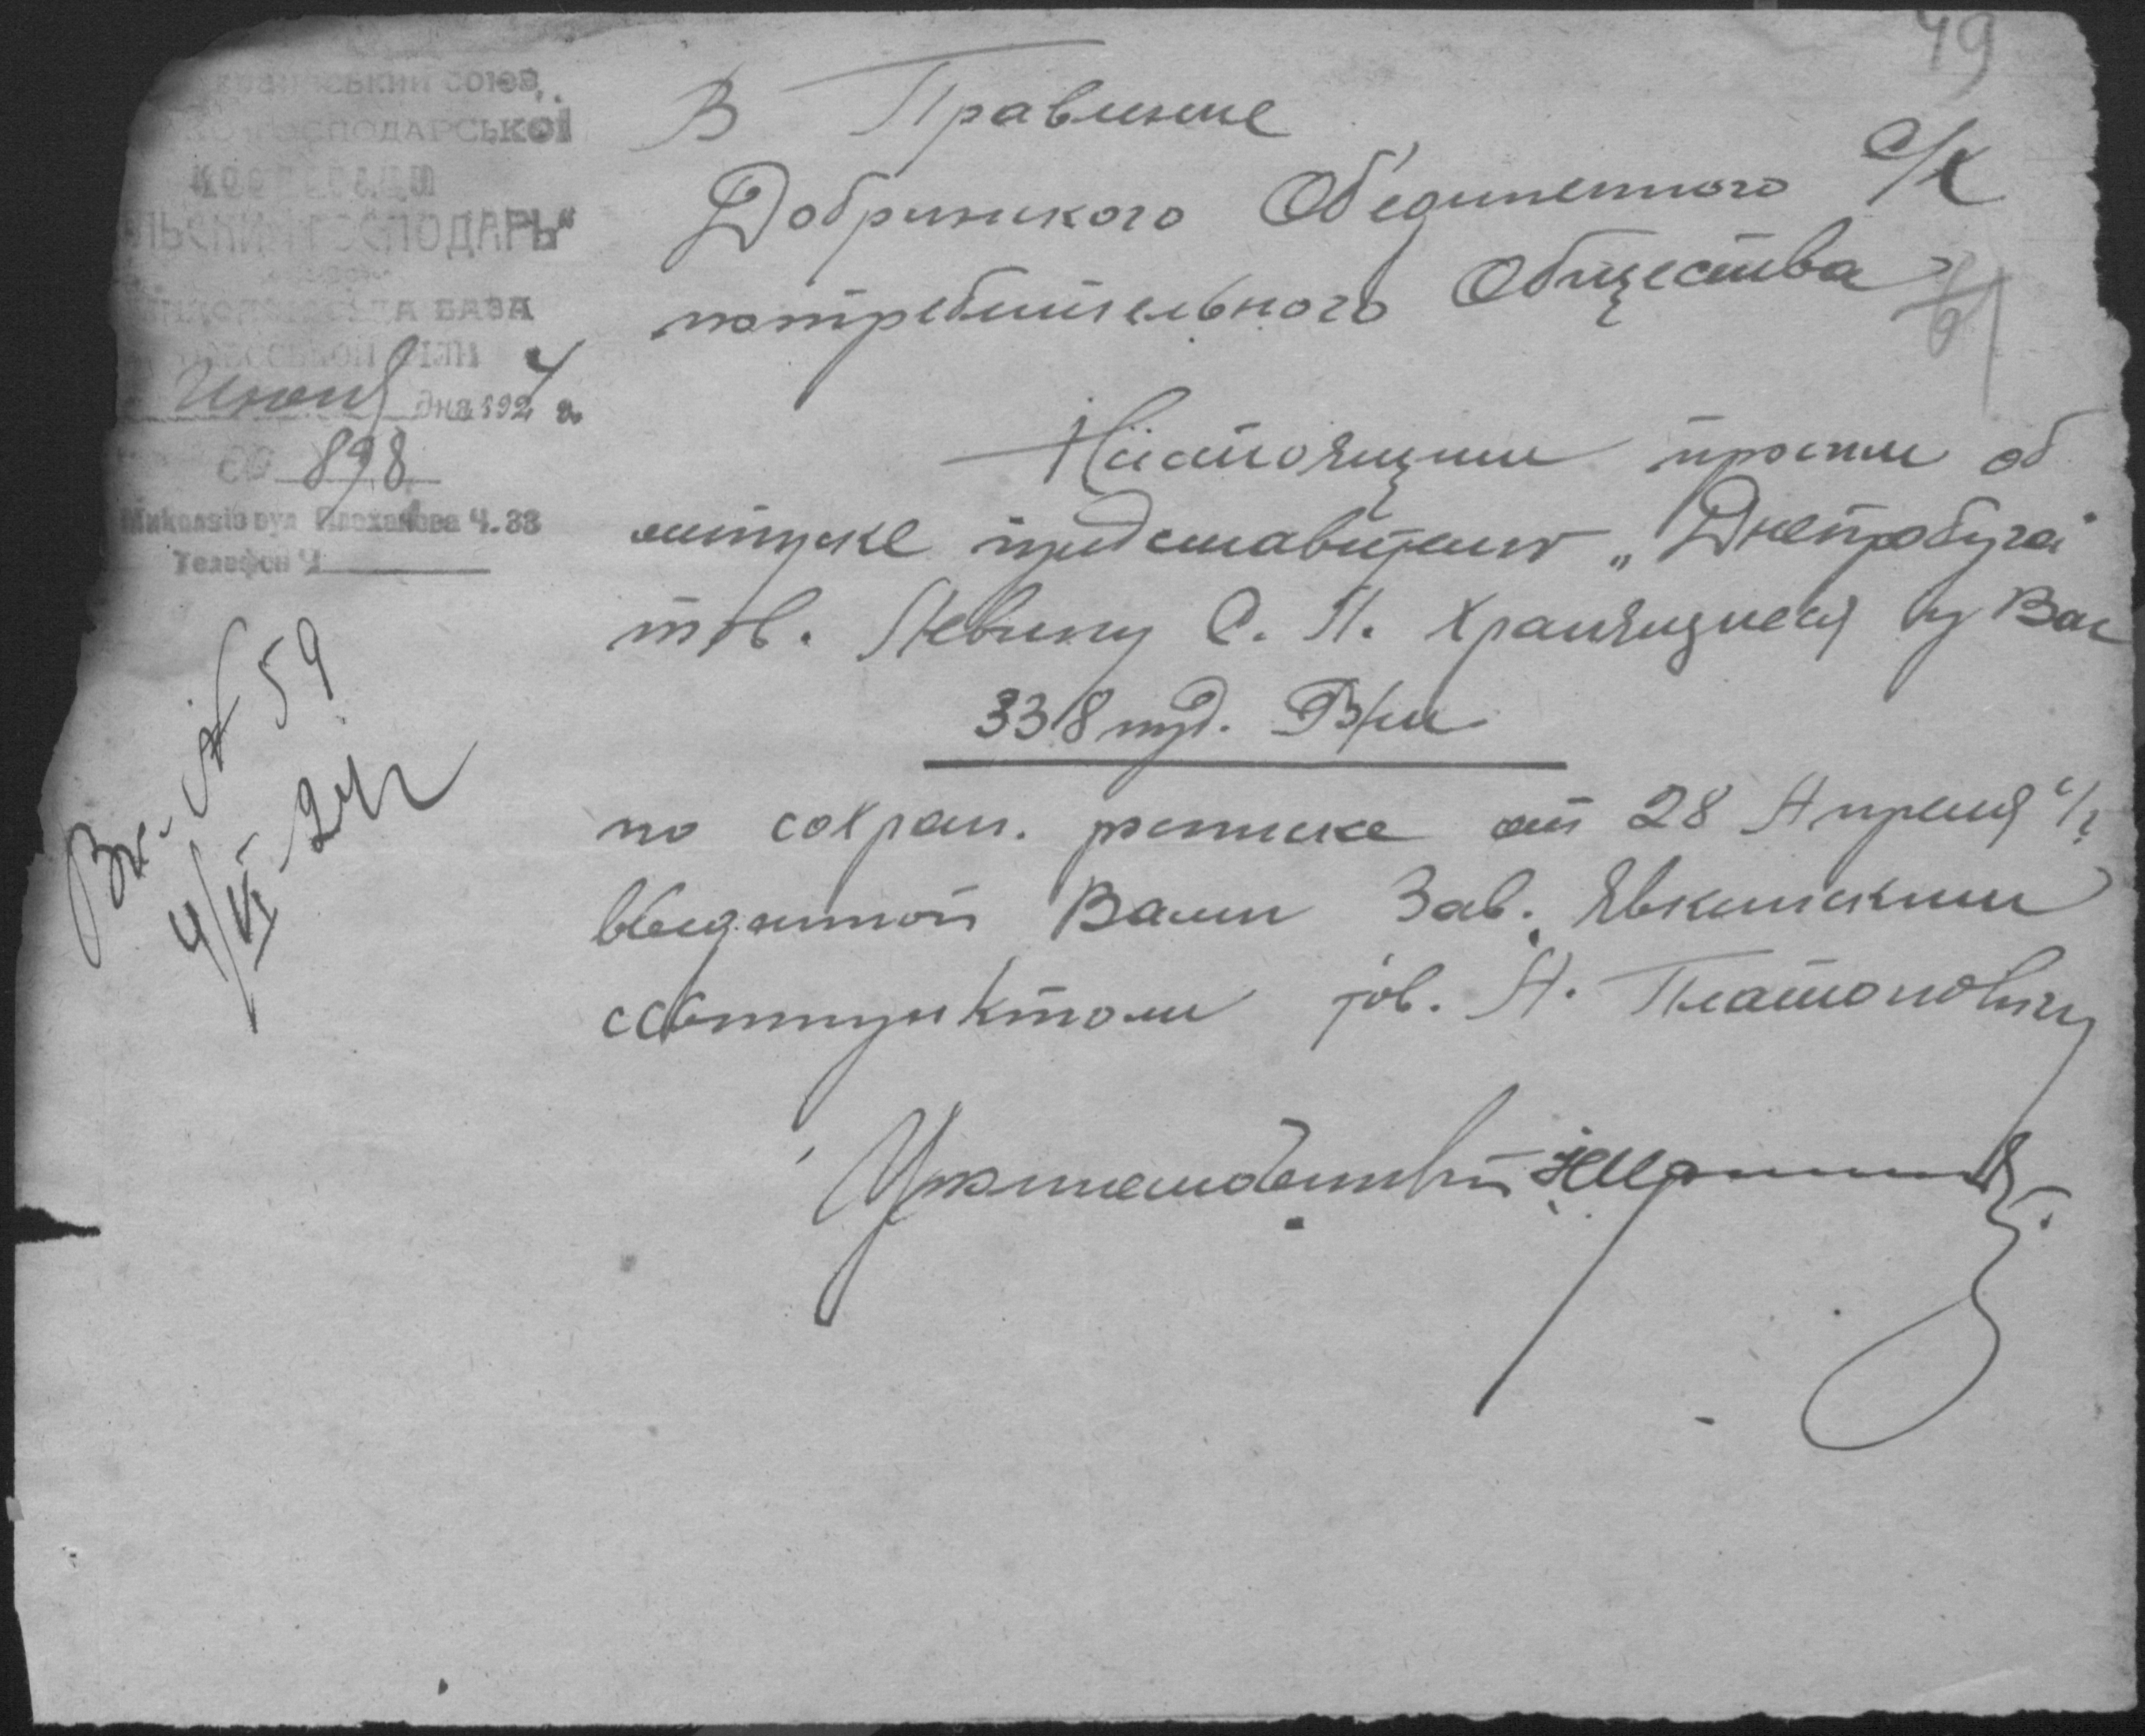 49
союз
господарської
кооперации
ГОСПОДАРЬ"
БАЗА
Июня дня 1924 г.
898
Миколаїв вул Плеханова Ч. 33
Телефон Ч
В Правление
Добринского Об'единенного С/Х
потребительного Общества
Настоящим просим об
отпуске представителю „Днепробуга"
тов. Левину С. Л. хранящиеся у Вас
338 пуд.
по сохран. расписке от 28 Апреля с/г
выданной Вами Зав. Явкинским
ссыппунктом тов. А. Платоновичу
Уполномоченный
Вх. № 59
4/VI-24 г